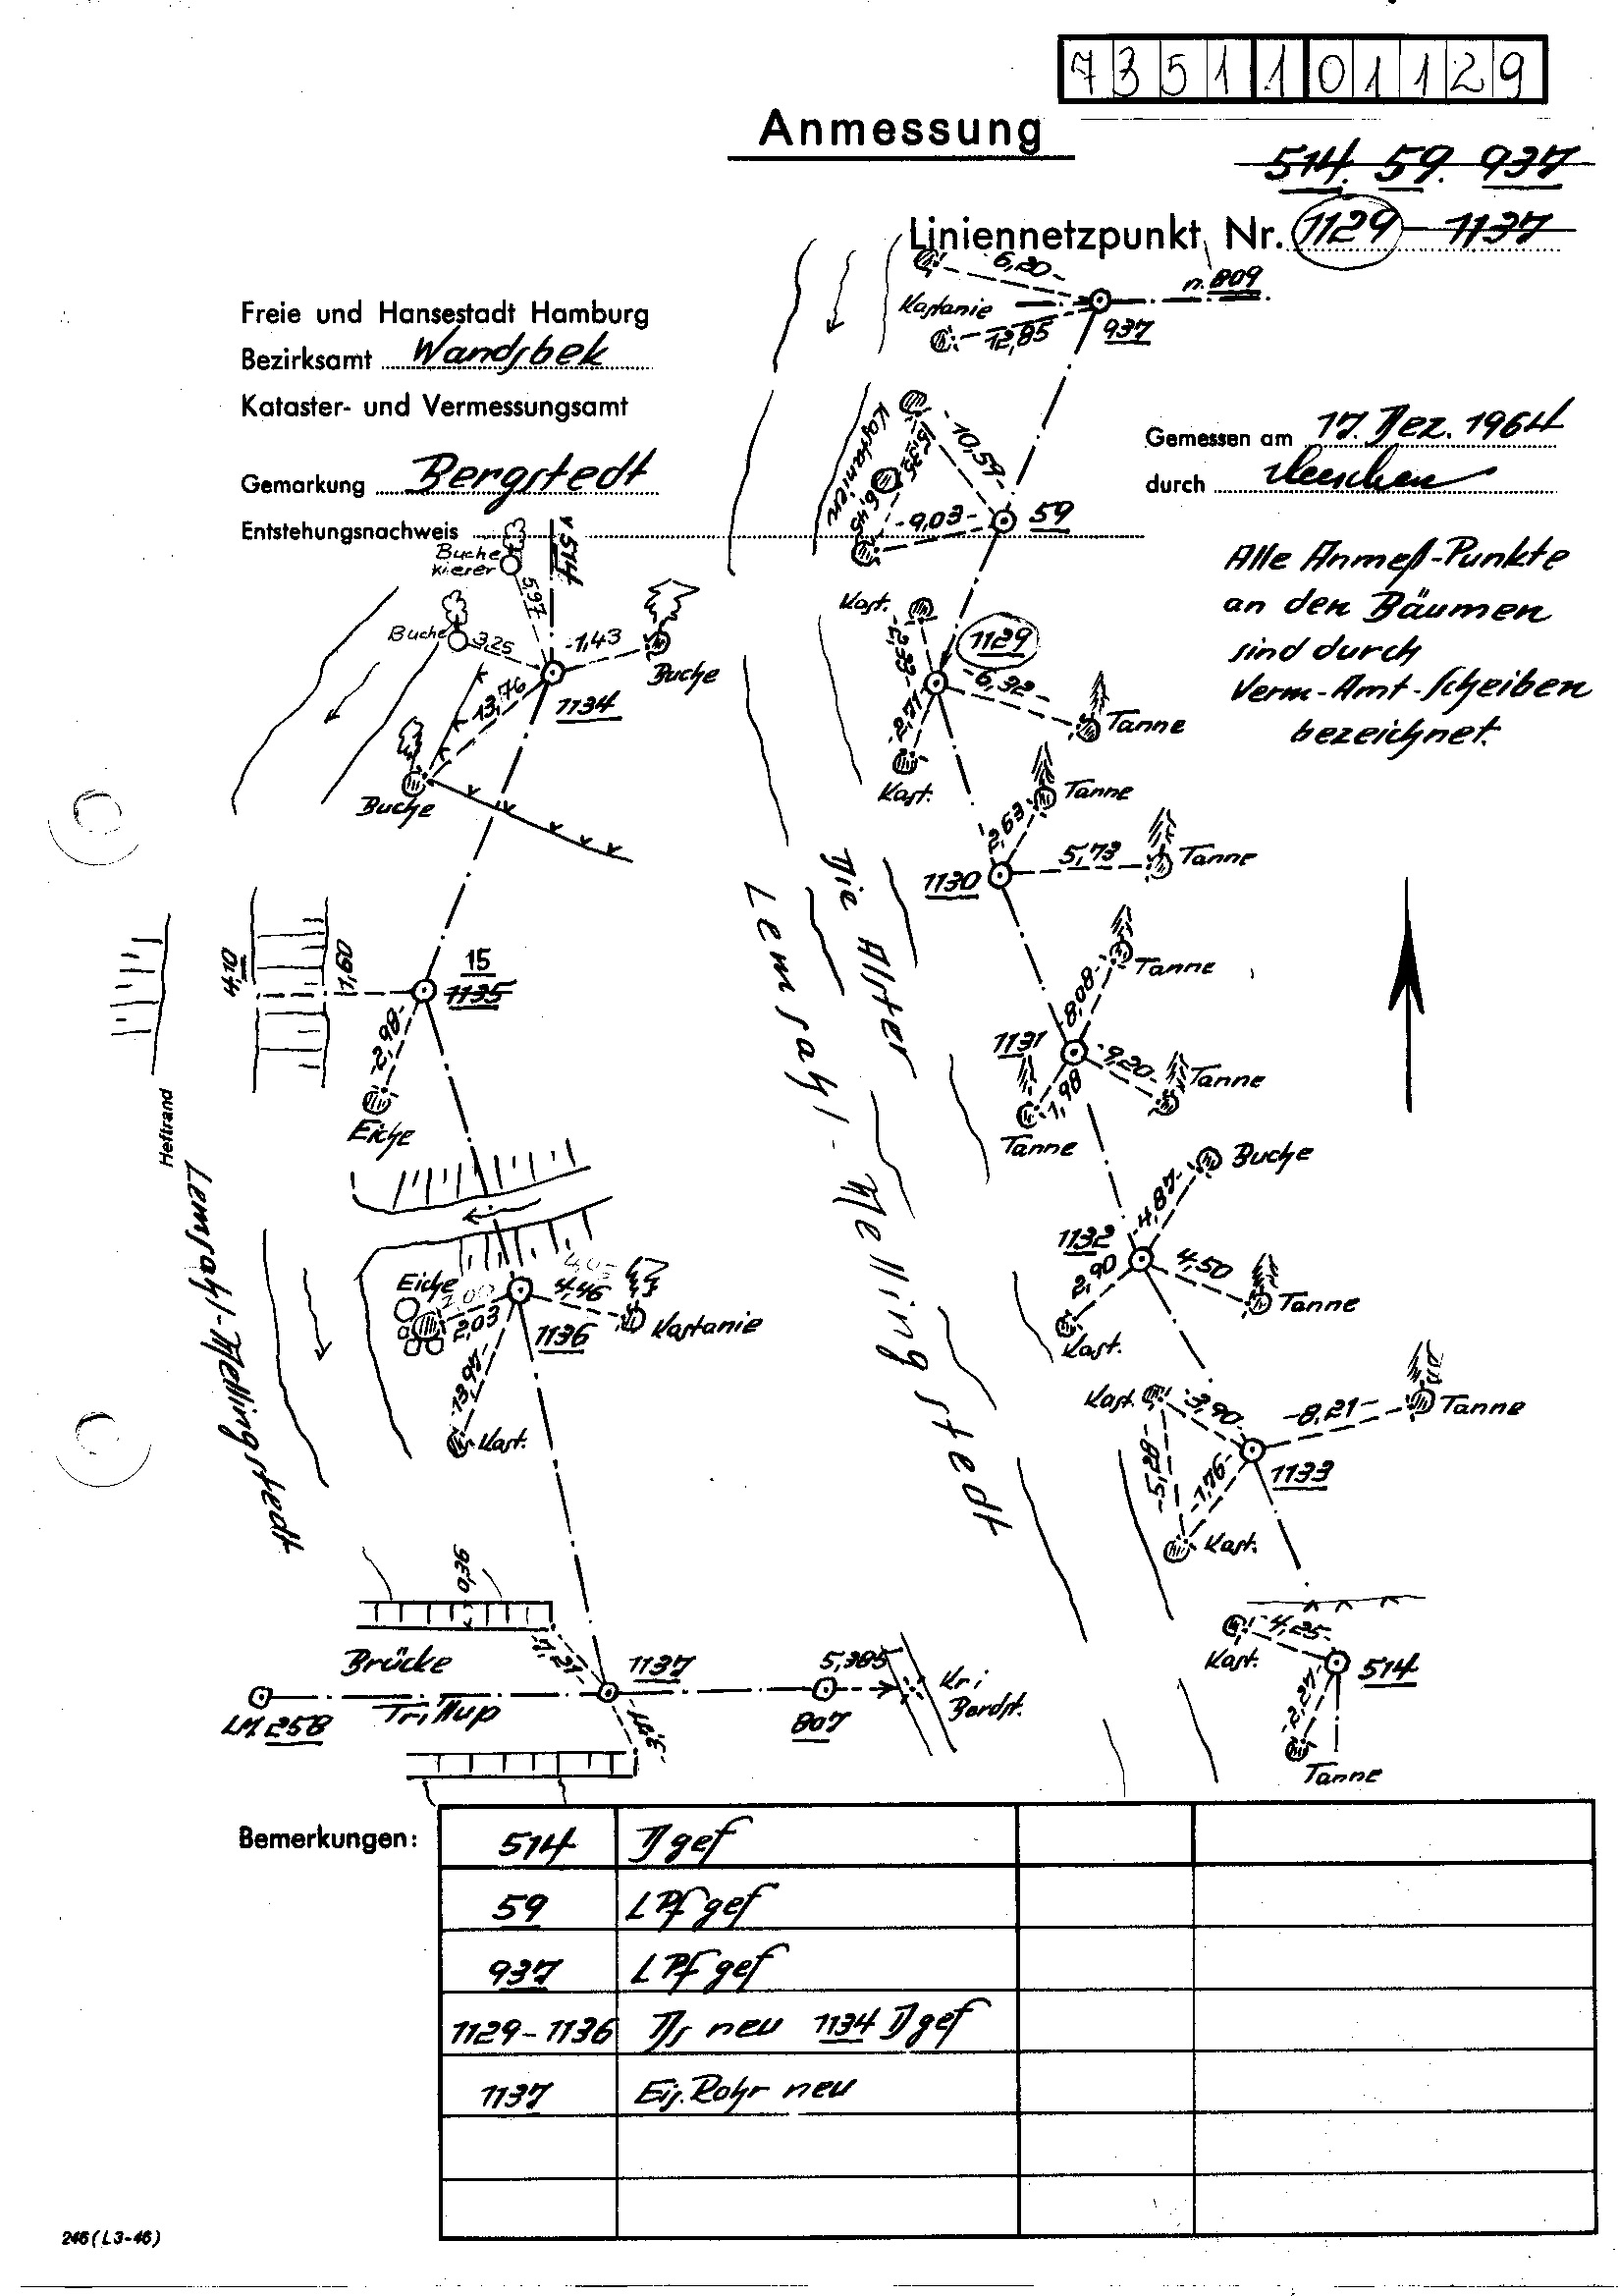 7351101129
Anmessung
514. 59. 937
Liniennetzpunkt Nr. 1129 - 1137
Freie und Hansestadt Hamburg
Bezirksamt Wandsbek
Kataster- und Vermessungsamt
Gemarkung Bergstedt
Entstehungsnachweis
Gemessen am 17. Dez. 1964
durch
Alle Anmeß-Punkte
an den Bäumen
sind durch
Verm-Amt-Scheiben
bezeichnet.
6,20
n. 809
Kastanie
12,85
937
Kastanien
15,35
10,59
6,45
9,03
59
v 514
Buche
Kiefer
5,97
Buche
3,25
1,43
Buche
13,76
1134
Buche
Kast.
2,33
1129
6,32
Tanne
2,47
Kast.
Tanne
2,63
5,73
Tanne
1130
4,10
1,60
15
1135
2,98
Eiche
Die Alster
Lemsahl-Mellingstedt
Tanne
8,08
1131
9,20
Tanne
1,98
Tanne
Heftrand
Lemsahl-Mellingstedt
Buche
4,87
1132
2,90
4,50
Tanne
Kast.
Eiche
2,00
2,03
4,46
1136
Kastanie
13,97
Kast.
Kast.
3,90
8,21
Tanne
5,28
1,76
1133
Kast.
0,36
Brücke
1,21
1137
5,385
Kri
Bordst.
LM 258
Trillup
807
3,91
4,25
Kast.
514
2,27
Tanne
Bemerkungen:
514 D gef
59 LPf gef
937 LPf gef
1129-1136 Ds neu 1134 D gef
1137 Eis. Rohr neu
246 (L3-46)